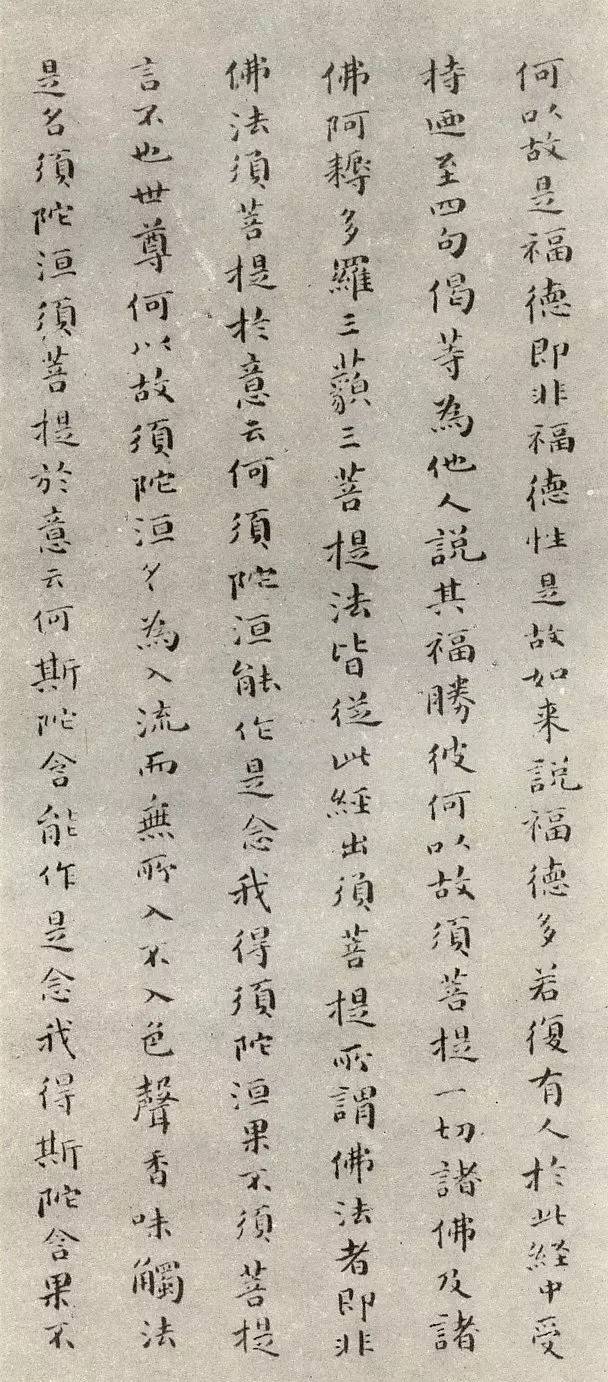 何以故是福德即非福德性是故如来説福德多若復有人於此經中受
持乃至四句偈等為他人説其福勝彼何以故須菩提一切諸佛及諸
佛阿耨多羅三藐三菩提法皆從此經出須菩提所謂佛法者即非
佛法須菩提於意云何須陀洹能作是念我得須陀洹果不須菩提
言不也世尊何以故須陀洹名為入流而無所入不入色聲香味觸法
是名須陀洹須菩提於意云何斯陀含能作是念我得斯陀含果不